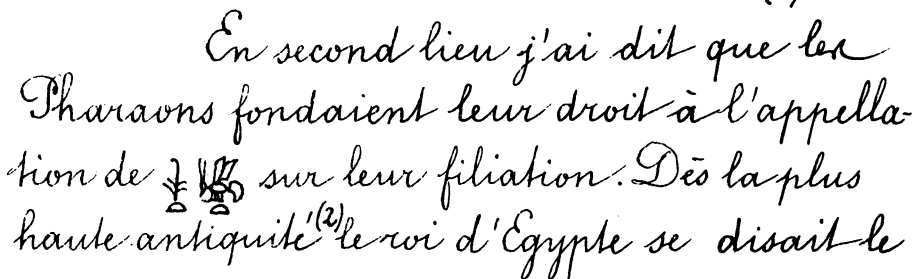 En second lieu j'ai dit que les
Pharaons fondaient leur droit à l'appella-
tion de 𓇓𓏏 sur leur filiation. Dès la plus
haute antiquité (2) le roi d'Egypte se disait le